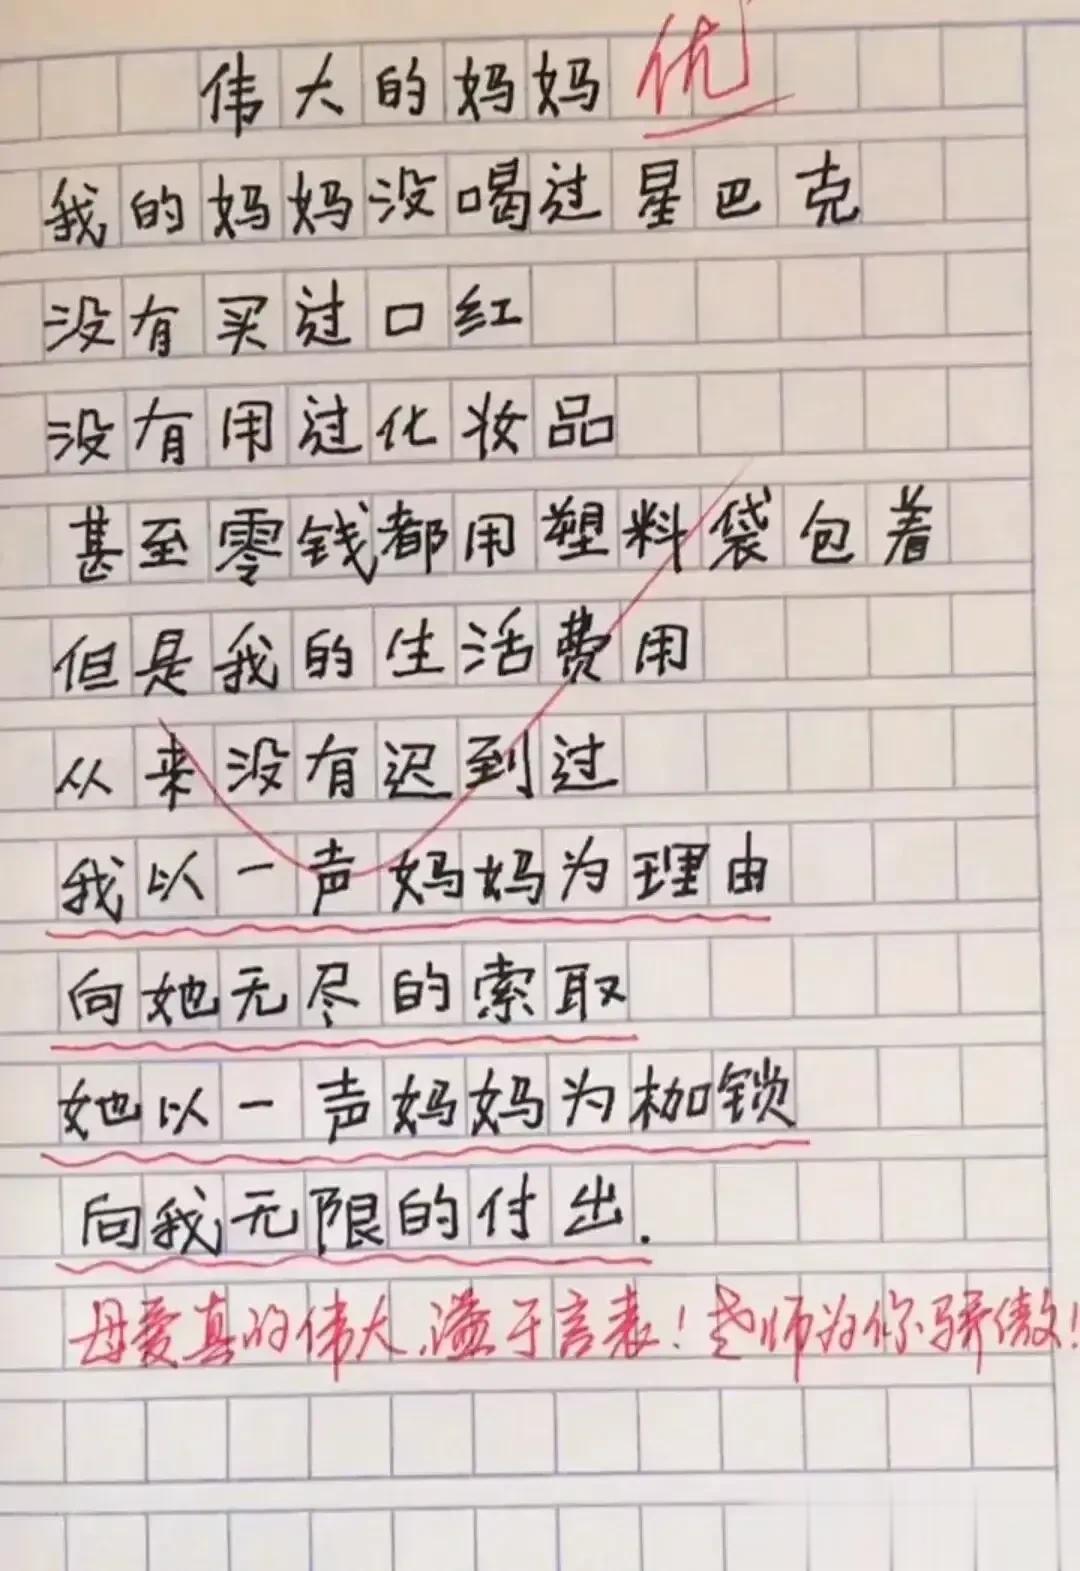 伟大的妈妈 优
我的妈妈没喝过星巴克
没有买过口红
没有用过化妆品
甚至零钱都用塑料袋包着
但是我的生活费用
从来没有迟到过
我以一声妈妈为理由
向她无尽的索取
她以一声妈妈为枷锁
向我无限的付出.
母爱真的伟大,溢于言表!老师为你骄傲!